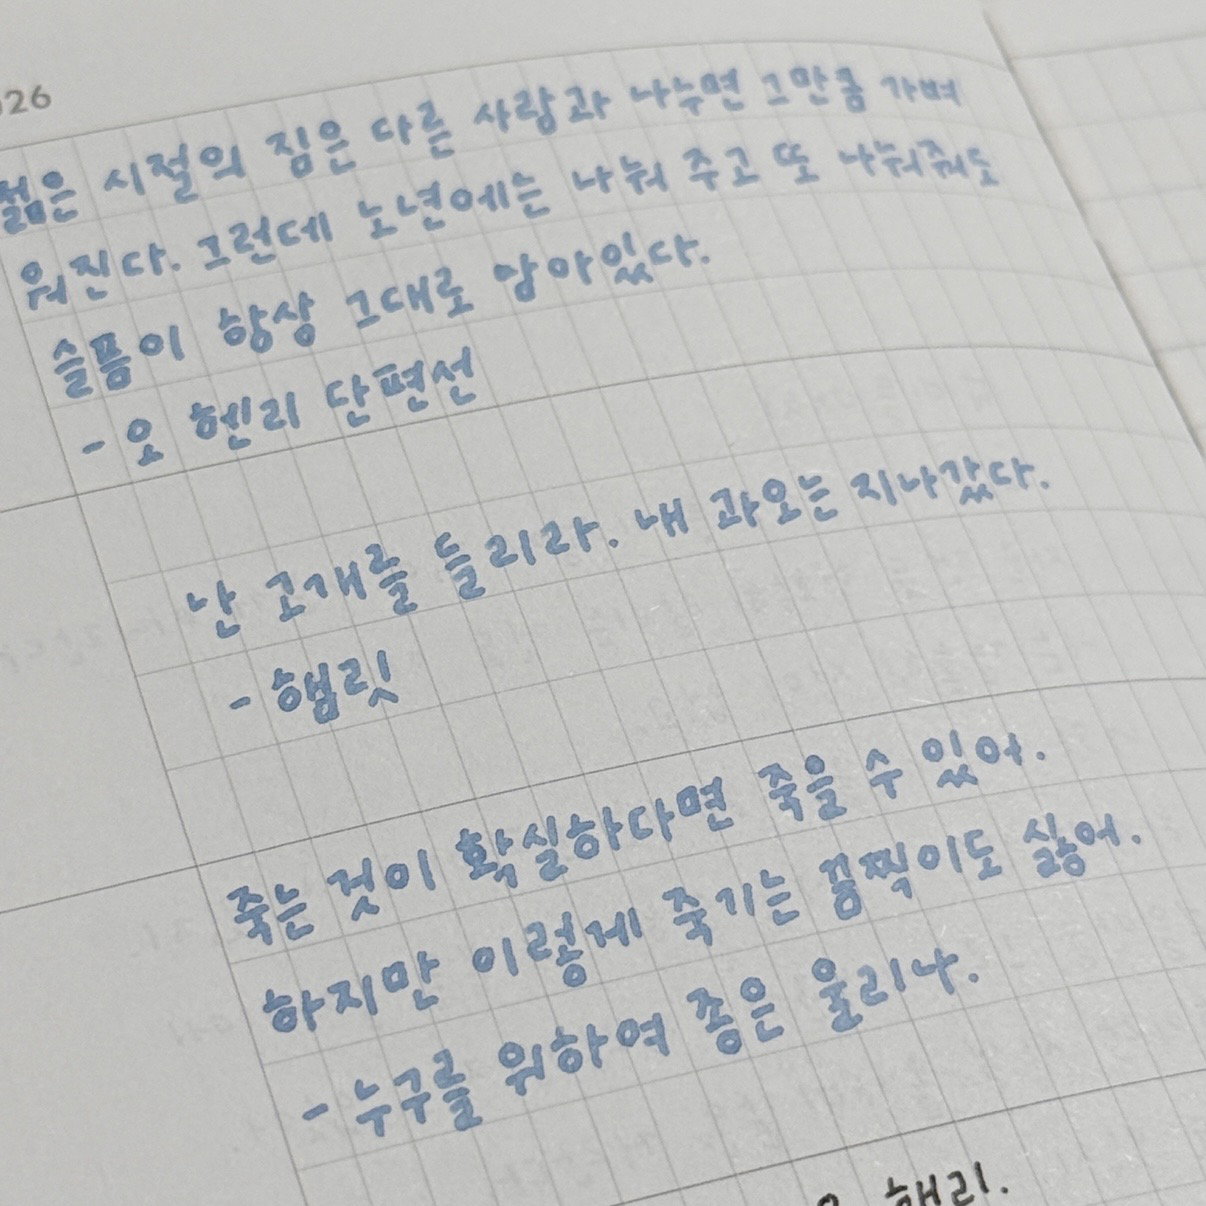 026
젊은 시절의 짐은 다른 사람과 나누면 그만큼 가벼
워진다. 그런데 노년에는 나눠 주고 또 나눠줘도
슬픔이 항상 그대로 남아있다.
- 오 헨리 단편선
난 고개를 들리라. 내 과오는 지나갔다.
- 햄릿
죽는 것이 확실하다면 죽을 수 있어.
하지만 이렇게 죽기는 끔찍이도 싫어.
- 누구를 위하여 종은 울리나.
해리.